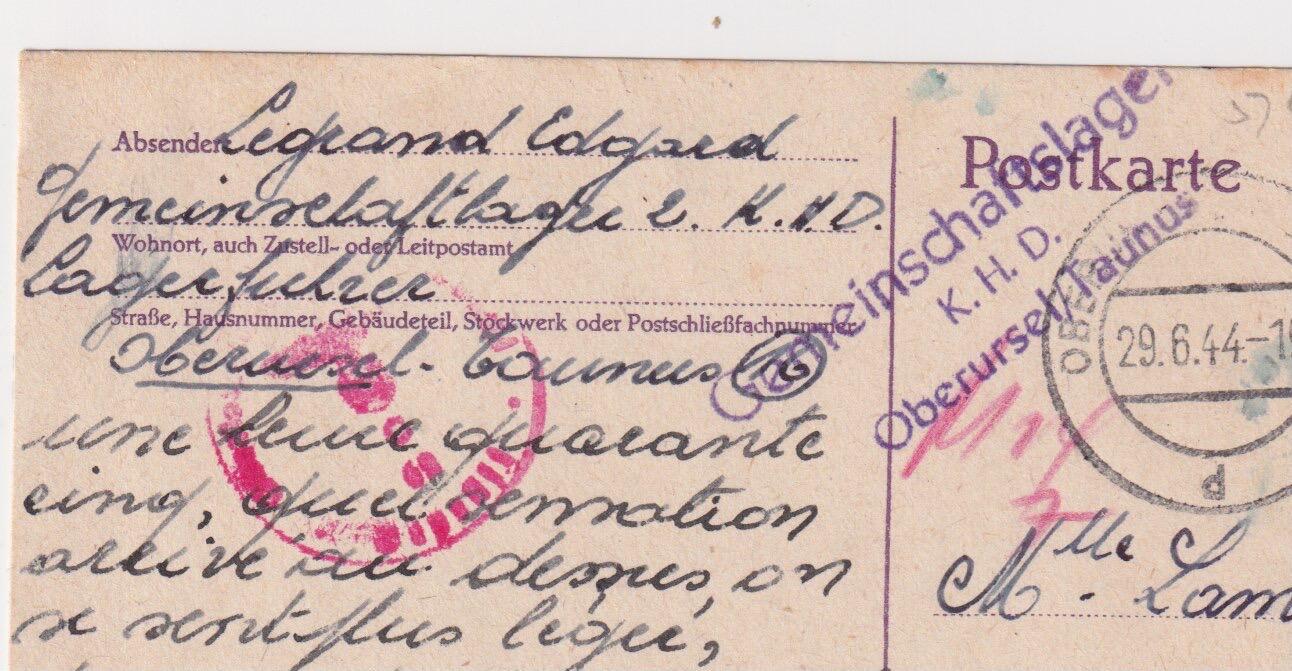 Absender Legrand Edgard
Gemeinschaftlager 2. K.H.D.
Wohnort, auch Zustell- oder Leitpostamt
Lagerfuhrer
Straße, Hausnummer, Gebäudeteil, Stockwerk oder Postschließfachnummer
Oberursel. Taunus (16)
une heure quarante
cinq, quel sensation
arrive au dessus, on
se sent plus léger,
Postkarte
Gemeinschaftslager
K. H. D.
Oberursel/Taunus
29.6.44.-1
d
Mlle. Lam
37